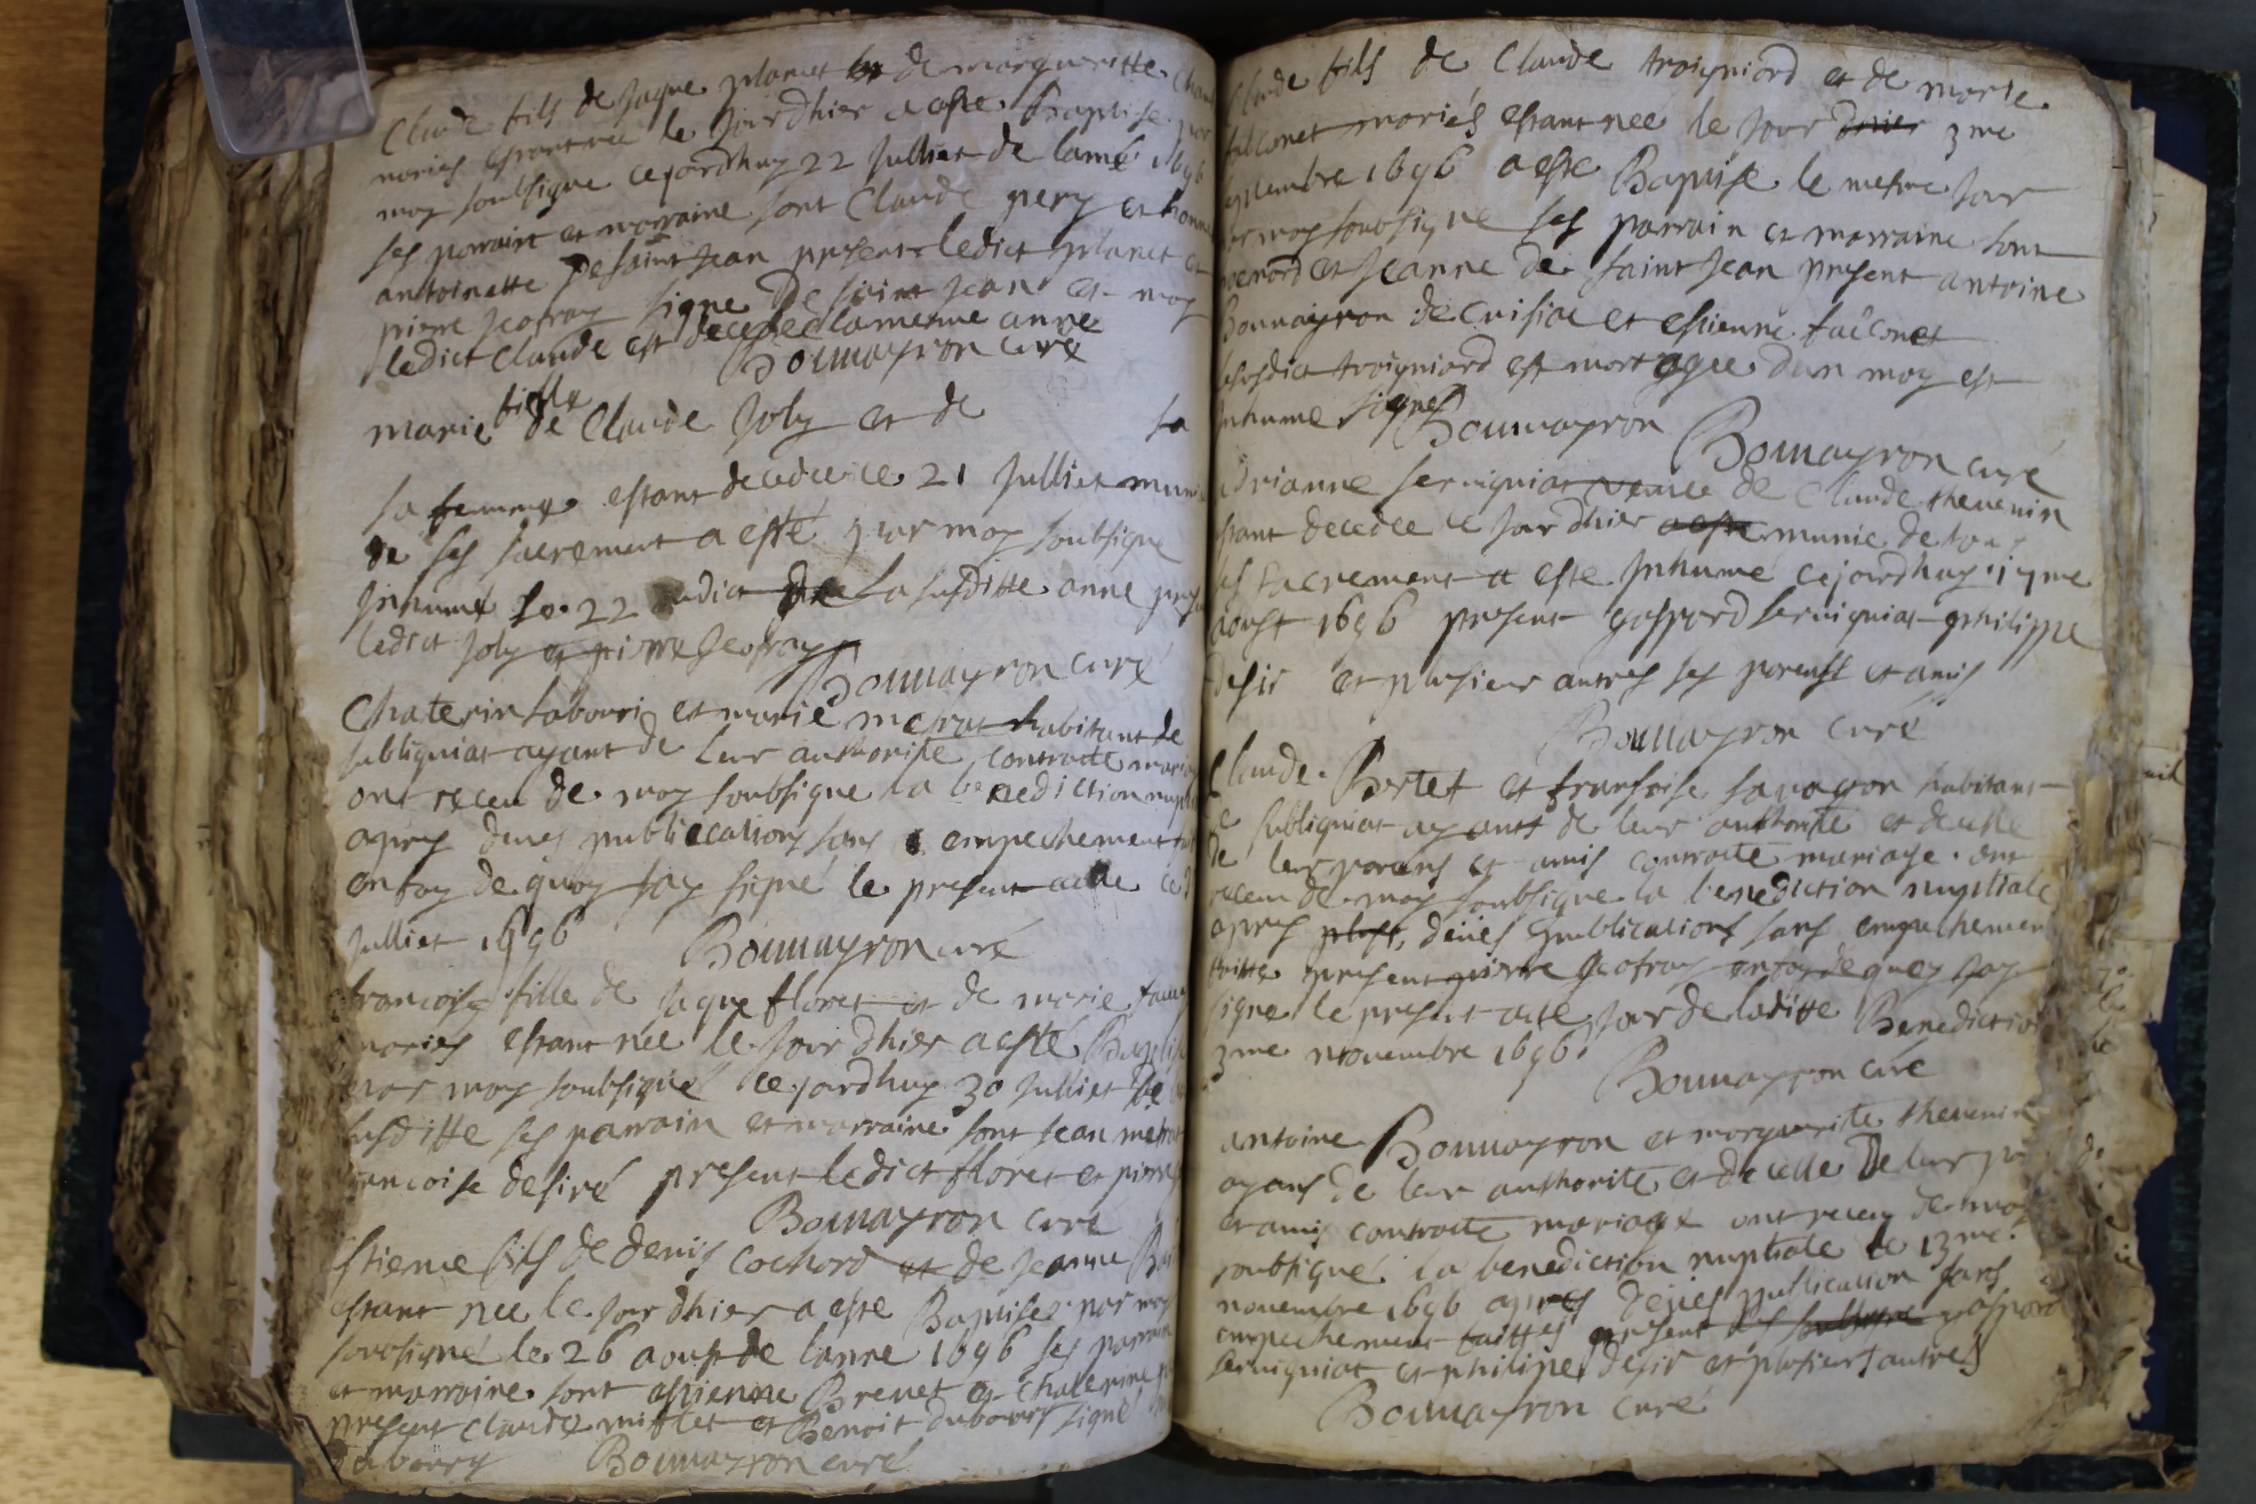 Claude fils de Jaque planet de margueritte
mariés estant née le jour dhier a esté Baptise par
moy soubsigne cejordhuy 22 Julliet de lanné 1696
ses parrain et marraine sont Claude pery et
antoinette De saint Jean present ledict planet et
pierre Jeofray signe De saint Jean et moy
ledict Claude est decedé la mesme anne
Bouuayron curé
marie fille de Claude Joly et de sa
sa femme estant decedee ce 21 Julliet munie
de ses sacrement a esté par moy soubsigne
Inhumé le 22 dudict de La susditte anne
ledict Joly et pierre Jeofray
Bouuayron curé
Chaterin labouri et marie mesrat habitant de
subligniat ayant de leur authorite contracte
ont receu de moy soubsigne la benediction
apres deues publiecations sans empechement
en foy de quoy jay signé le present acte ce
Julliet 1696 Bouuayron curé
francoise fille de Jaque floret et de marie
maries estant née le jour dhier a esté
par moy soubsigné ce jordhuy 30 Julliet de
susditte ses parrain et marraine sont Jean
francoise desiré present ledict floret et pierre
Bouuayron curé
Estienne fils de denis Cochard et de Jeanne
estant nee le jour dhier a esté Baptisez par moy
sousigné le 26 aoust de lanne 1696 ses parrain
et marraine sont estienne Brenet et Chaterine
present Claude miflet et Benoit dubourg signé
Dubourg Bouuayron curé
Claude fils de Claude troigniard et de marie
falconet mariés estant née le jour dhier 3me
septembre 1696 a esté Baptisé le mesme jour
par moy soubsigne ses parrain et marraine sont
et Jeanne de saint Jean present antoine
Bouuayron de Cuisiae et estienne falconet
lesusdict troigniard est mort agee dun moy est
Inhume signe Bouuayron
Bouuayron curé
Drianne seruigniat veuue de Claude theuenin
estant decedée le jour dhier a esté munie de tou
ses sacrement a esté Inhume cejordhuy
aoust 1696 present gaspard seruigniat philippe
desir et plusieur autres ses parenst et amis
Bouuayron curé
Claude Bertet et fransoise sauayon habitant
de subligniat ayantt de leur authorité et de celle
de leur parens et amis contracte mariage ont
receu de moy soubsigne la benediction nuptiale
apres plus, deües publications sans empechemen
faitte present pierre Jeofray en foy de quoy jay
signe le present acte jour de laditte Benediction
3me nouembre 1696
Bouuayron curé
antoine Bouuayron et marguerite theuenin
ayans de leur authorité et de celle De leur
et amis contracte mariage ont receu de moy
soubsigné la benediction nuptiale le 13me
nouembre 1696 apres deües publication sans
empechement faittes present gaspard
seruigniat et philipe desir et plusieur autres
Bouuayron curé